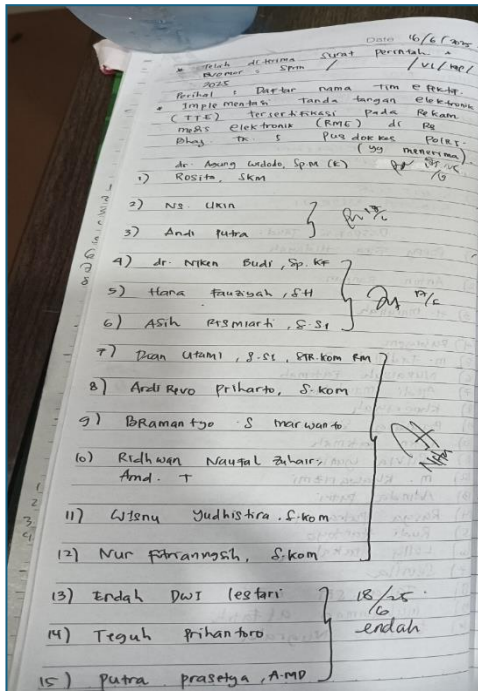 Date 16/6/2025
* Telah diterima Surat perintah
Nomor : Sprin / / VI / KEP /
2025
Perihal : Daftar nama Tim efektif.
• Implementasi Tanda tangan elektronik
(TTE) tersertifikasi pada Rekam
medis elektronik (RME) di RS
Bhay. TK. I Pusdokkes Polri.
(yg menerima)
dr. Agung Widodo, Sp.M (K)
1) Rosita, SKM
2) Ns. Ukin
3) Andi Putra
4) dr. Niken Budi, Sp.KF
5) Hana Fauziyah, SH
6) Asih Rismiarti, S.SI
7) Dian Utami, S.SI, STR.kom RM
8) Andi Revo Priharto, S.kom
9) BRamantyo S marwanto
10) Ridhwan Naufal Zuhair,
Amd. T
11) Wisnu Yudhistira. S.kom
12) Nur Fitrianngsh, S.kom
13) Endah DWI lestari
18/25
6
endah
14) Teguh Prihantoro
15) Putra prasetya, A.MD